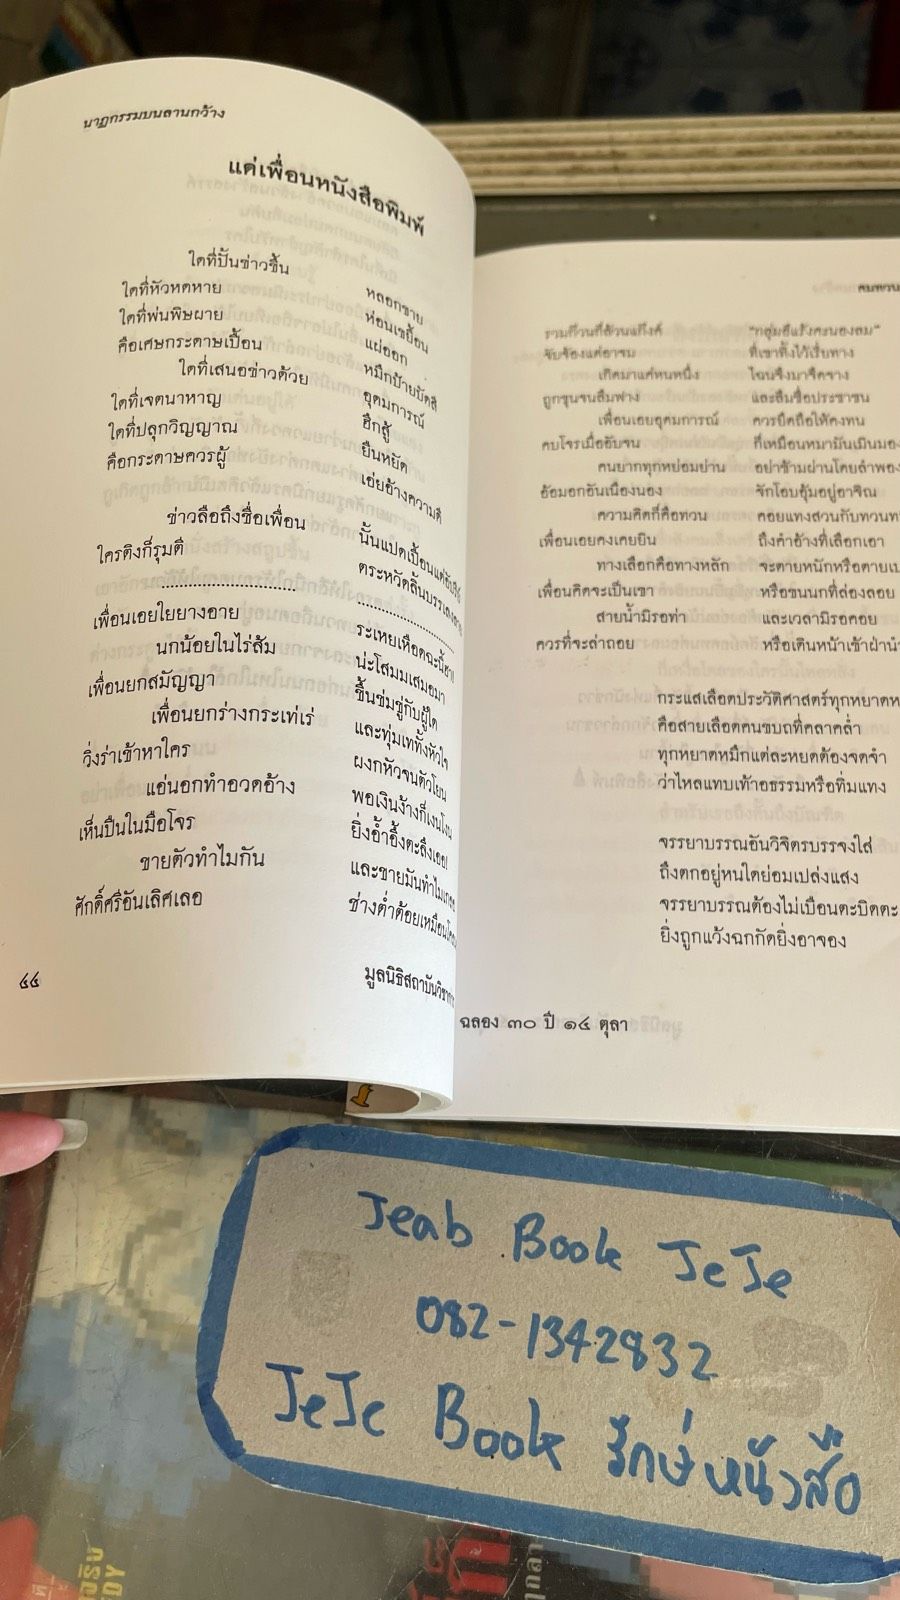 นาฏกรรมบนลานกว้าง
แด่เพื่อนหนังสือพิมพ์
ใดที่ปั้นข่าวขึ้น หลอกขาย
ใดที่หัวหดหาย ห่อนเขยื้อน
ใดที่พ่นพิษผาย แผ่ออก
คือเศษกระดาษเปื้อน หมึกป้ายบัดสี
ใดที่เสนอข่าวด้วย อุดมการณ์
ใดที่เจตนาหาญ ฮึกสู้
ใดที่ปลุกวิญญาณ ยืนหยัด
คือกระดาษควรผู้ เอ่ยอ้างความดี
ข่าวลือถึงชื่อเพื่อน นั้นแปดเปื้อนแต่
ใครติงก็รุมตี ตระหวัดลิ้น
................................
เพื่อนเอยใยยางอาย ระเหยเหือดฉะนี้
นกน้อยในไร่ส้ม น่ะโสมมเสมอมา
เพื่อนยกสมัญญา ขึ้นข่มขู่กับผู้ใด
เพื่อนยกร่างกระเท่เร่ และทุ่มเททั้งหัวใจ
วิ่งร่าเข้าหาใคร ผงกหัวจนตัวโยน
แอ่นอกทำอวดอ้าง พอเงินง้างก็เงนโงน
เห็นปืนในมือโจร ยิ่งอ้ำอึ้งตะลึงเออ
ขายตัวทำไมกัน และขายมันทำไม
ศักดิ์ศรีอันเลิศเลอ ช่างต่ำต้อยเหมือน
๔๔
มูลนิธิสถาบันวิชา
คมทวน
รวมก๊วนก็ล้วนแก๊งค์ "กลุ่มอีแร้งคะนองลม"
จับจ้องแต่อาจม ที่เขาทิ้งไว้เรี่ยทาง
เกิดมาแค่หนหนึ่ง ไฉนจึงมาจืดจาง
ถูกขุนจนลืมฟาง และลืมชื่อประชาชน
เพื่อนเอยอุดมการณ์ ควรยึดถือให้คงทน
คบโจรเมื่ออับจน ที่เหมือนหมามันเมินมอง
คนยากทุกหย่อมย่าน อย่าข้ามผ่านโดยลำพอง
อ้อมอกอันเนืองนอง จักโอบอุ้มอยู่อาจิณ
ความคิดก็คือทวน คอยแทงสวนกับทวน
เพื่อนเอยคงเคยยิน ถึงคำอ้างที่เลือกเอา
ทางเลือกคือทางหลัก จะตายหนักหรือตาย
เพื่อนคิดจะเป็นเขา หรือขนนกที่ล่องลอย
สายน้ำมิรอท่า และเวลามิรอคอย
ควรที่จะล่าถอย หรือเดินหน้าเข้าฝ่า
กระแสเลือดประวัติศาสตร์ทุกหยาด
คือสายเลือดคนขบถที่คลาคล่ำ
ทุกหยาดหมึกแต่ละหยดต้องจดจำ
ว่าไหลแทบเท้าอธรรมหรือทิ่มแทง
จรรยาบรรณอันวิจิตรบรรจงใส่
ถึงตกอยู่หนใดย่อมเปล่งแสง
จรรยาบรรณต้องไม่เบือนตะบิดตะ
ยิ่งถูกแว้งฉกกัดยิ่งอาจอง
ฉลอง ๓๐ ปี ๑๔ ตุลา
Jeab Book JeJe
082-1342832
JeJe Book รักษ์หนังสือ